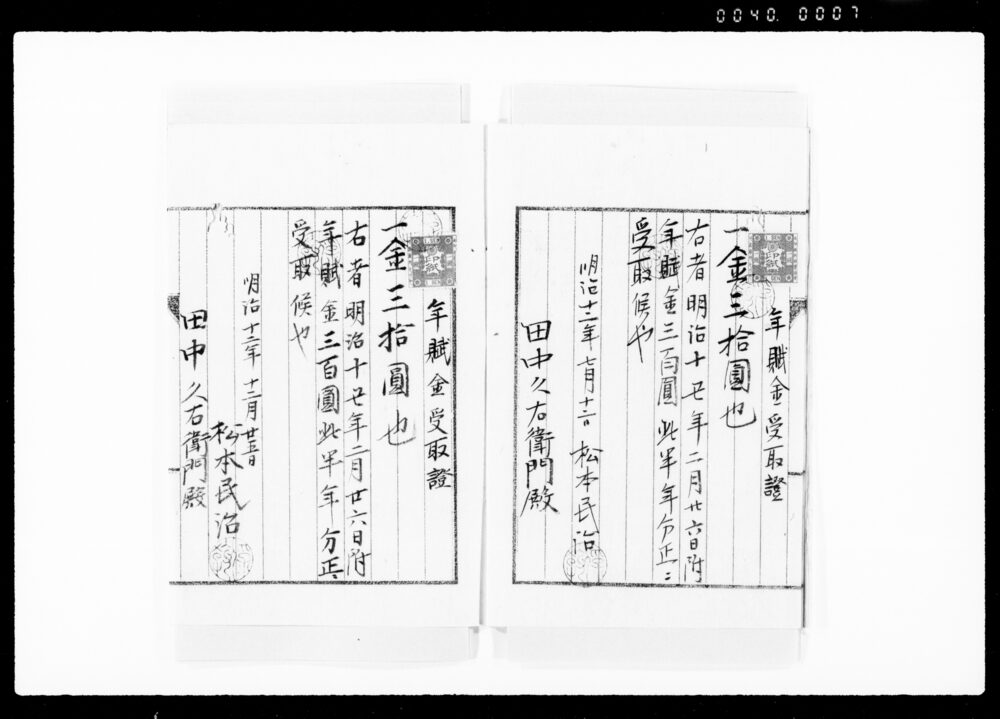 0040.0007
年賦金受取證
一金三拾圓也
右者明治十廿年二月廿六日附
年賦金三百圓此半年分正ニ
受取候也
明治十二年七月十二日
松本民治
田中久右衛門殿
年賦金受取證
一金三拾圓也
右者明治十廿年二月廿六日附
年賦金三百圓此半年分正ニ
受取候也
明治十二年十二月廿五日
松本民治
田中久右衛門殿